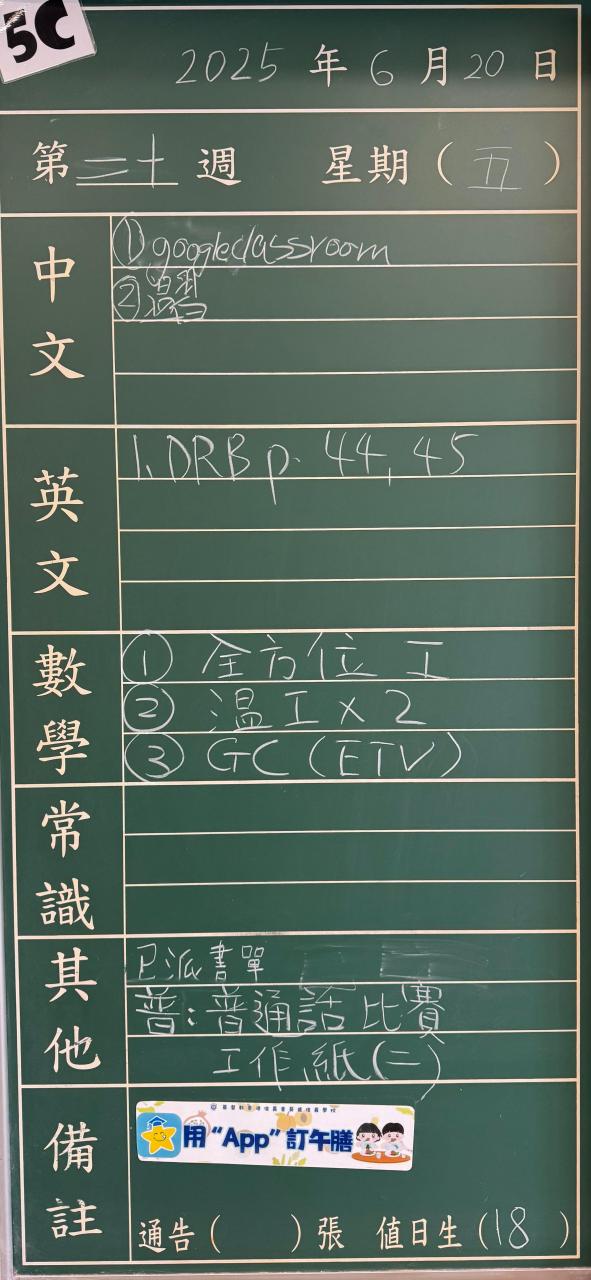 5C
2025 年 6 月 20 日
第 二十 週 星期 ( 五 )
中文
① googleclassroom
② 溫習
英文
1. DRB p. 44, 45
數學
① 全方位 工
② 溫工 x 2
③ GC (ETV)
常識
其他
已派書單
普：普通話比賽
工作紙(二)
備註
用 “App” 訂午膳
通告 ( ) 張 值日生 (18 )